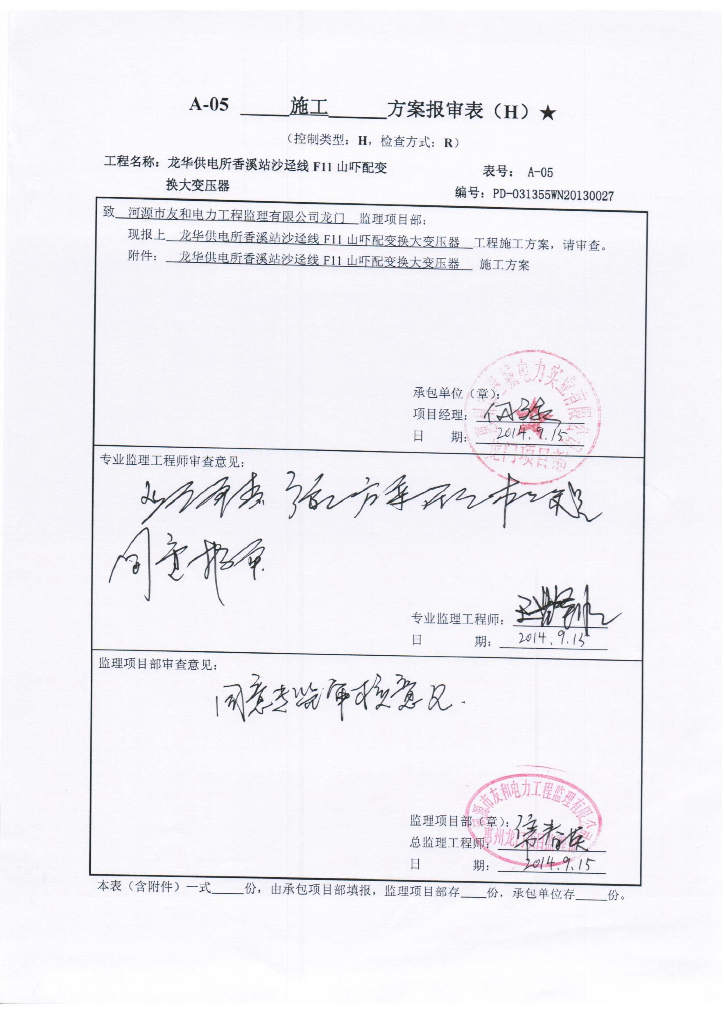 A-05 施工 方案报审表（H）★
（控制类型：H，检查方式：R）
工程名称：龙华供电所香溪站沙迳线 F11 山吓配变
换大变压器
表号： A-05
编号：PD-031355WN20130027
致 河源市友和电力工程监理有限公司龙门 监理项目部：
现报上 龙华供电所香溪站沙迳线 F11 山吓配变换大变压器 工程施工方案，请审查。
附件： 龙华供电所香溪站沙迳线 F11 山吓配变换大变压器 施工方案
承包单位（章）：
项目经理：
日 期： 2014.9.15
龙门项目部
专业监理工程师审查意见：
同意报审
专业监理工程师：
日 期： 2014.9.15
监理项目部审查意见：
同意专监审核意见.
河源市友和电力工程监理有限公司
监理项目部（章）：
总监理工程师：
日 期： 2014.9.15
本表（含附件）一式____份，由承包项目部填报，监理项目部存____份，承包单位存____份。